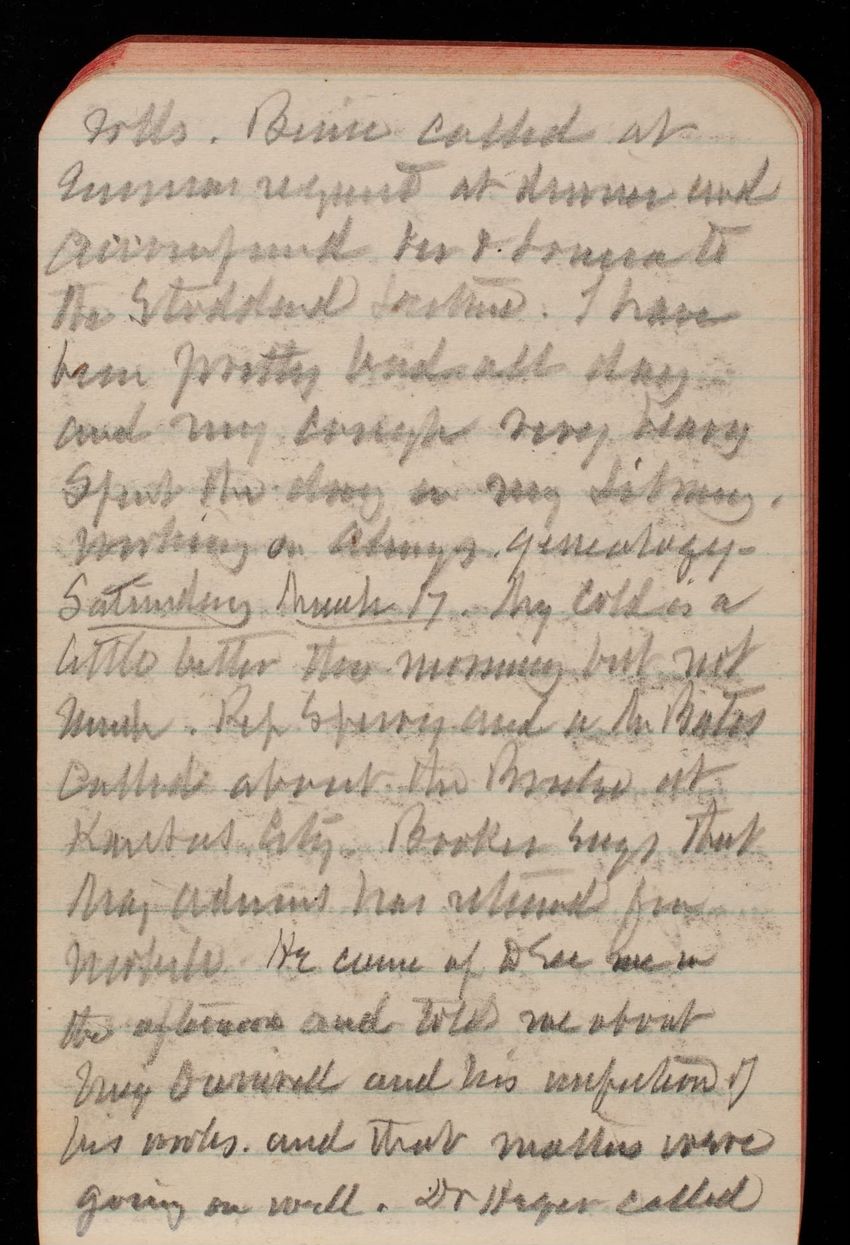 Mills. Binnie called at
request at dinner and
her & Donna to
the Stoddard Lecture. I have
been pretty bad all day
and my cough very heavy
Spent the day in my library.
working on Adams genealogy-
Saturday March 17. My cold is a
little better this morning but not
much. Rep Sperry and a Mr Bates
called about the Bridge at
Kansas City. Booker says that
Maj Adams has returned from
Mobile He came up to see me in
the afternoon and told me about
Maj and his inspection of
his works. and that matters were
going on well. Dr Hager called